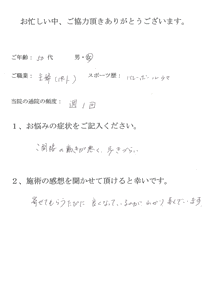 お忙しい中、ご協力頂きありがとうございます。
ご年齢： 50 代 男・女
ご職業： 主婦（パート） スポーツ歴：
当院の通院の頻度： 週1回
1、お悩みの症状をご記入ください。
動きが悪く、歩きづらい
2、施術の感想を聞かせて頂けると幸いです。
寄せてもらうたびに良くなっているのが